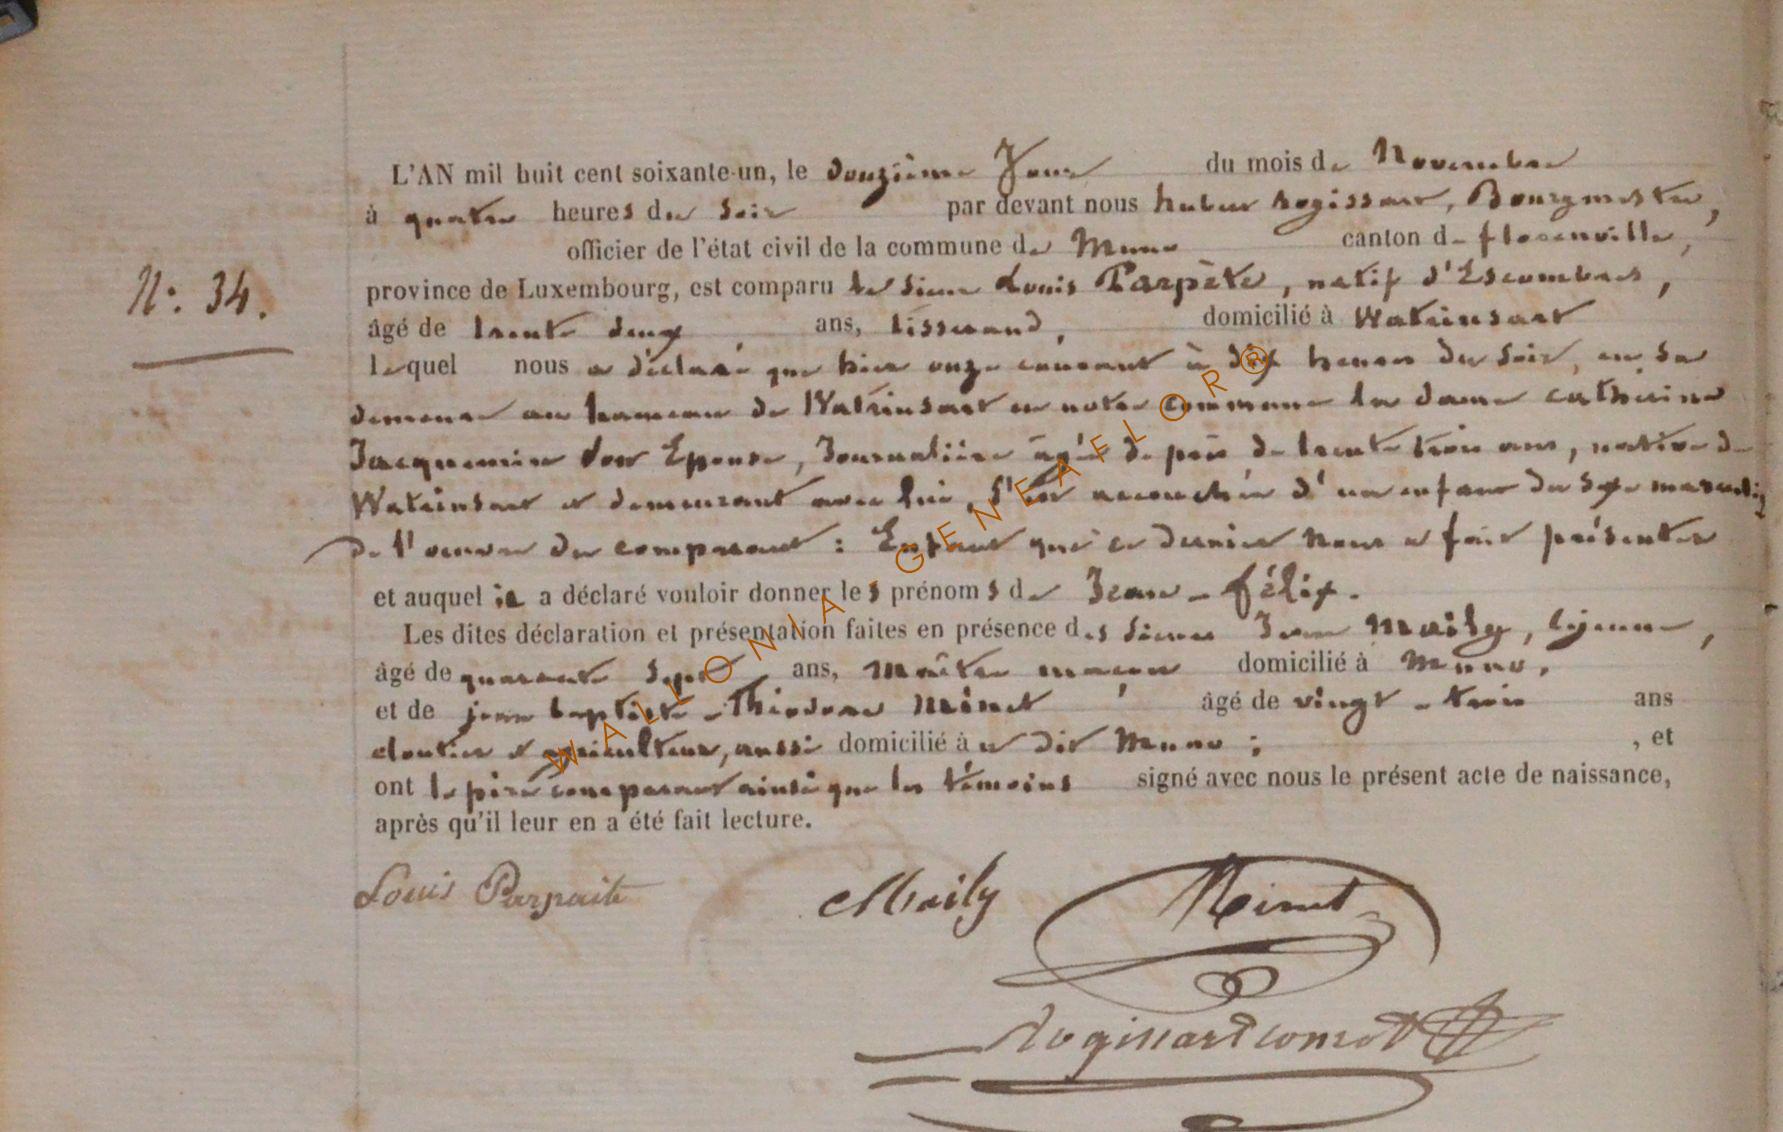 L'AN mil huit cent soixante-un, le douzième Jour du mois de Novembre
à quatre heures du Soir par devant nous hubert Rogissart, Bourgmestre,
officier de l'état civil de la commune de Muno canton de florenville,
province de Luxembourg, est comparu le Sieur Louis Parpète, natif d'Escombres,
âgé de trente deux ans, tisserand, domicilié à Watrinsart
N: 34.
lequel nous a déclaré que hier onze courant à dix heures du Soir, en Sa
demeure au hameau de Watrinsart en notre commune la dame catherine
Jacquemin son Epouse, Journalière âgée de près de trente trois ans, native de
Watrinsart et demeurant avec lui, S'est accouchée d'un enfant du Sexe masculin
de l'oeuvre du comparant : Enfant que ce dernier nous a fait présenter
et auquel il a déclaré vouloir donner les prénoms de Jean - félix.
Les dites déclaration et présentation faites en présence des Sieurs Jean Maily, lejeune,
âgé de quarante Sept ans, Maître maçon domicilié à Muno,
et de jean baptiste - Théodore Minet âgé de vingt - trois ans
cloutier et agriculteur, aussi domicilié à ce dit Muno ; , et
ont le père comparant ainsi que les témoins signé avec nous le présent acte de naissance,
après qu'il leur en a été fait lecture.
Louis Parpaite Maily Minet
Rogissart
WALLONIA-GENEAFLOR®